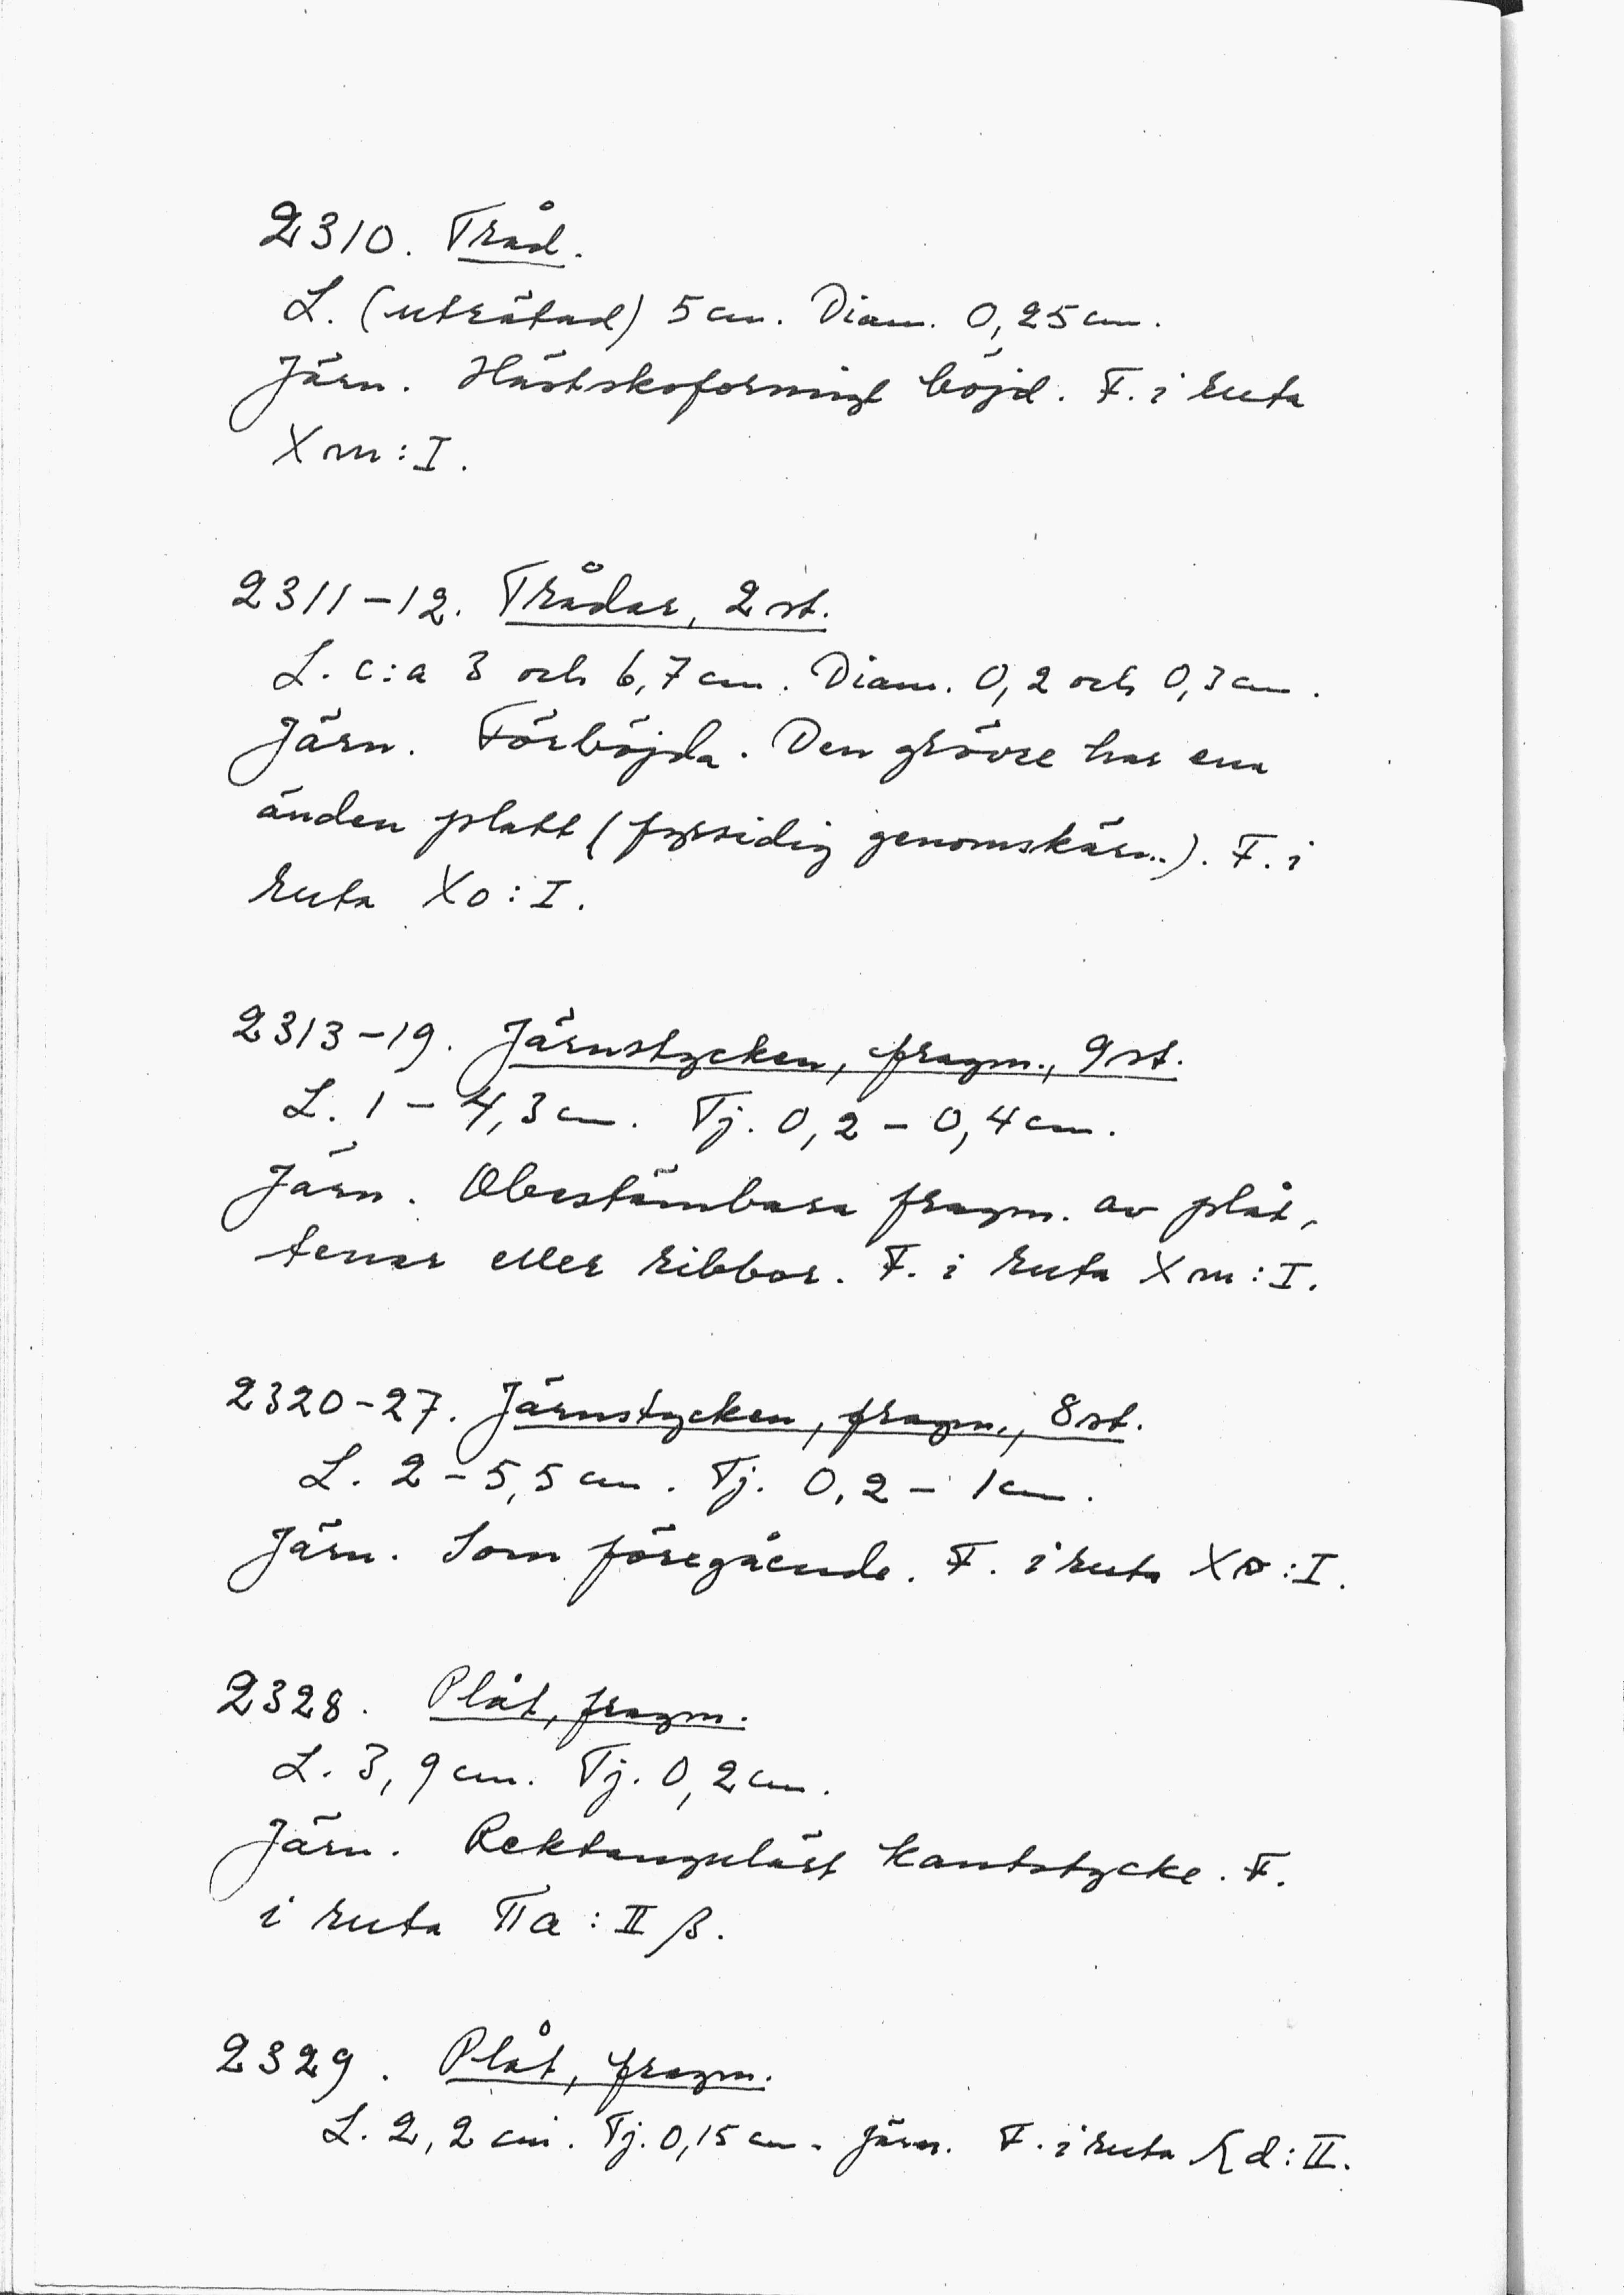 2310. Tråd.
L. (uträtad) 5 cm. Diam. 0,25 cm.
Järn. Hästskoformigt böjd. F. i ruta
Xm:I.
2311-12. Trådar, 2 st.
L. c:a 3 och 6,7 cm. Diam. 0,2 och 0,3 cm.
Järn. Förböjda. Den grövre har ena
änden platt (fyrsidig genomskärn.). F. i
ruta Xo:I.
2313-19. Järnstycken, fragm., 9 st.
L. 1 - 4,3 cm. Tj. 0,2 - 0,4 cm.
Järn. Obestämbara fragm. av plåt,
tenar eller ribbor. F. i ruta Xm:I.
2320-27. Järnstycken, fragm., 8 st.
L. 2 - 5,5 cm. Tj. 0,2 - 1 cm.
Järn. Som föregående. F. i ruta Xo:I.
2328. Plåt, fragm.
L. 3,9 cm. Tj. 0,2 cm.
Järn. Rektangulärt kantstycke. F.
i ruta Πa:II β.
2329. Plåt, fragm.
L. 2,2 cm. Tj. 0,15 cm. Järn. F. i ruta d:II.